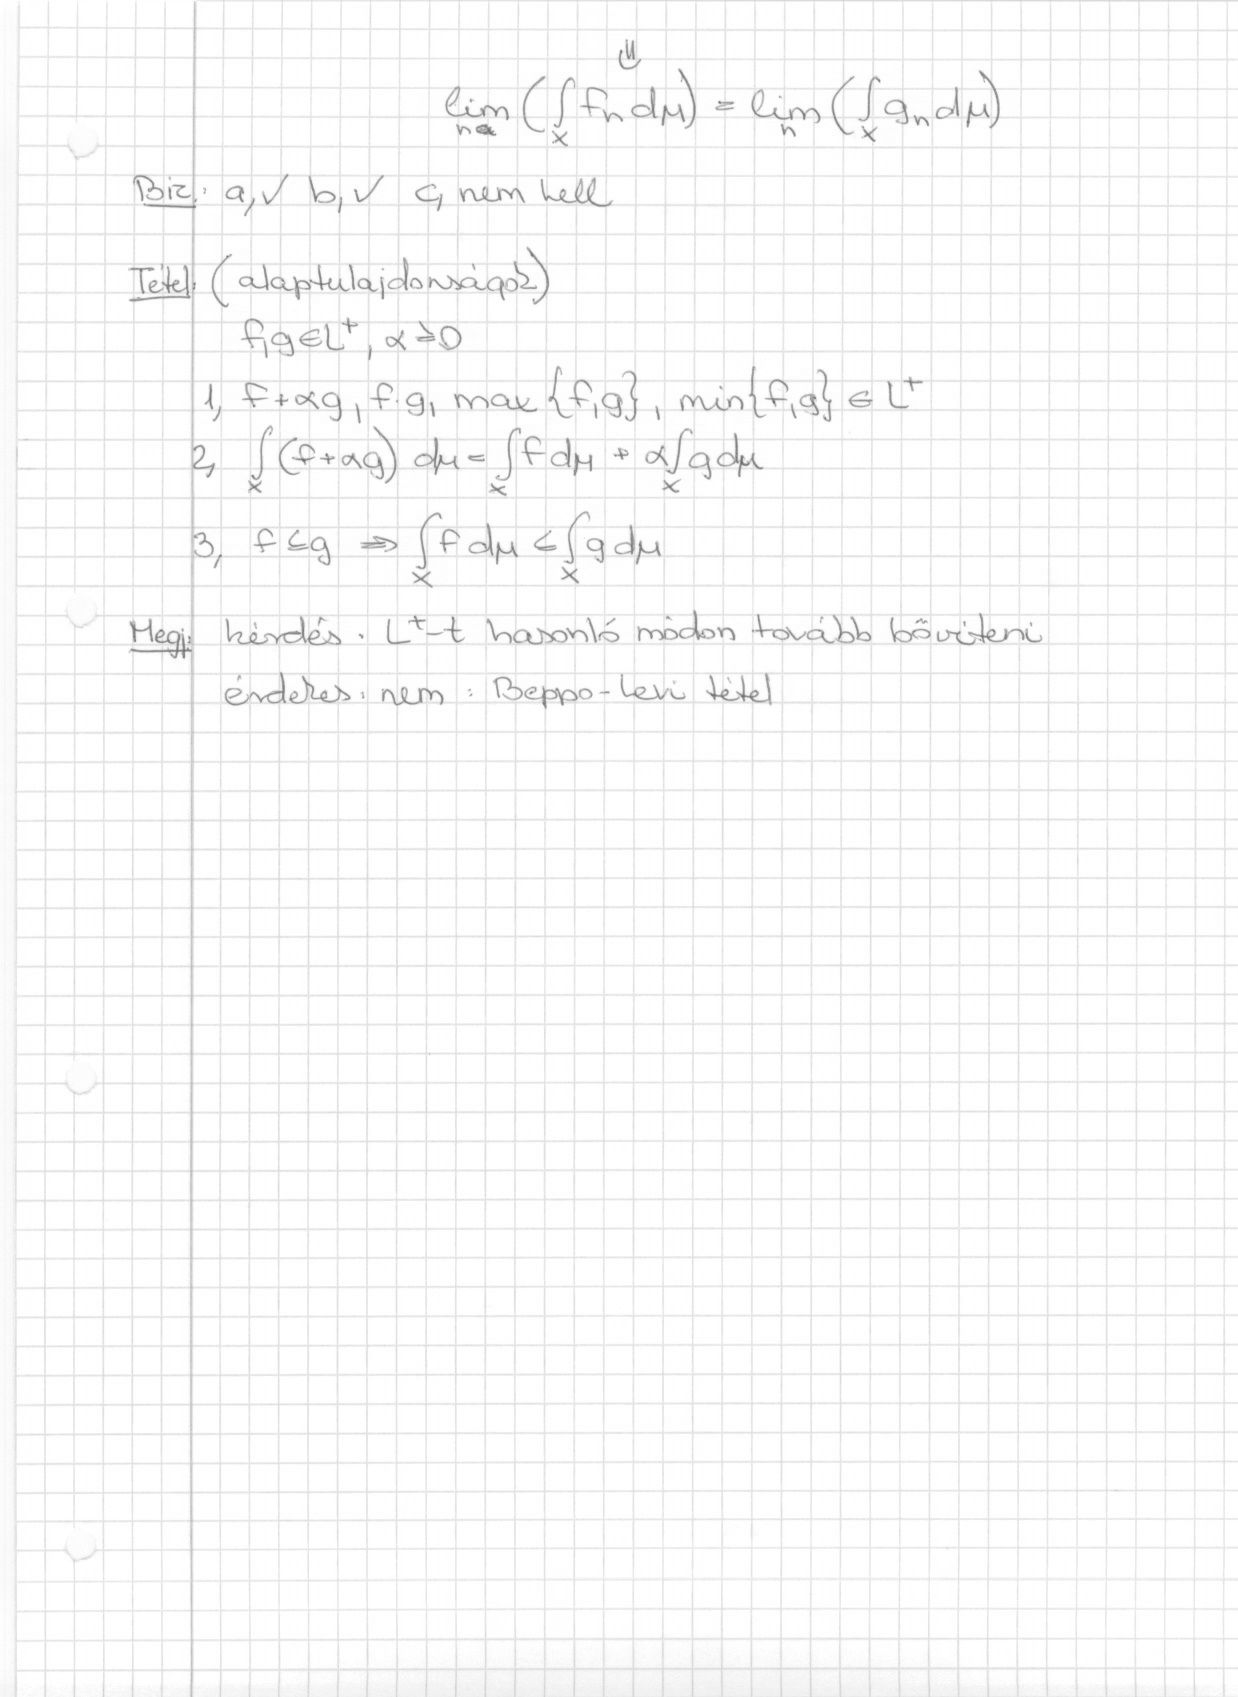 ⇓
lim_n (∫_X f_n dμ) = lim_n (∫_X g_n dμ)
Biz: a,✓ b,✓ c, nem kell
Tétel: (alaptulajdonságok)
f,g∈L⁺, α≥0
1, f+αg, f·g, max{f,g}, min{f,g} ∈ L⁺
2, ∫_X (f+αg) dμ = ∫_X f dμ + α∫_X g dμ
3, f≤g ⇒ ∫_X f dμ ≤ ∫_X g dμ
Megj: kérdés: L⁺-t hasonló módon tovább bővíteni
érdekes: nem: Beppo-Levi tétel